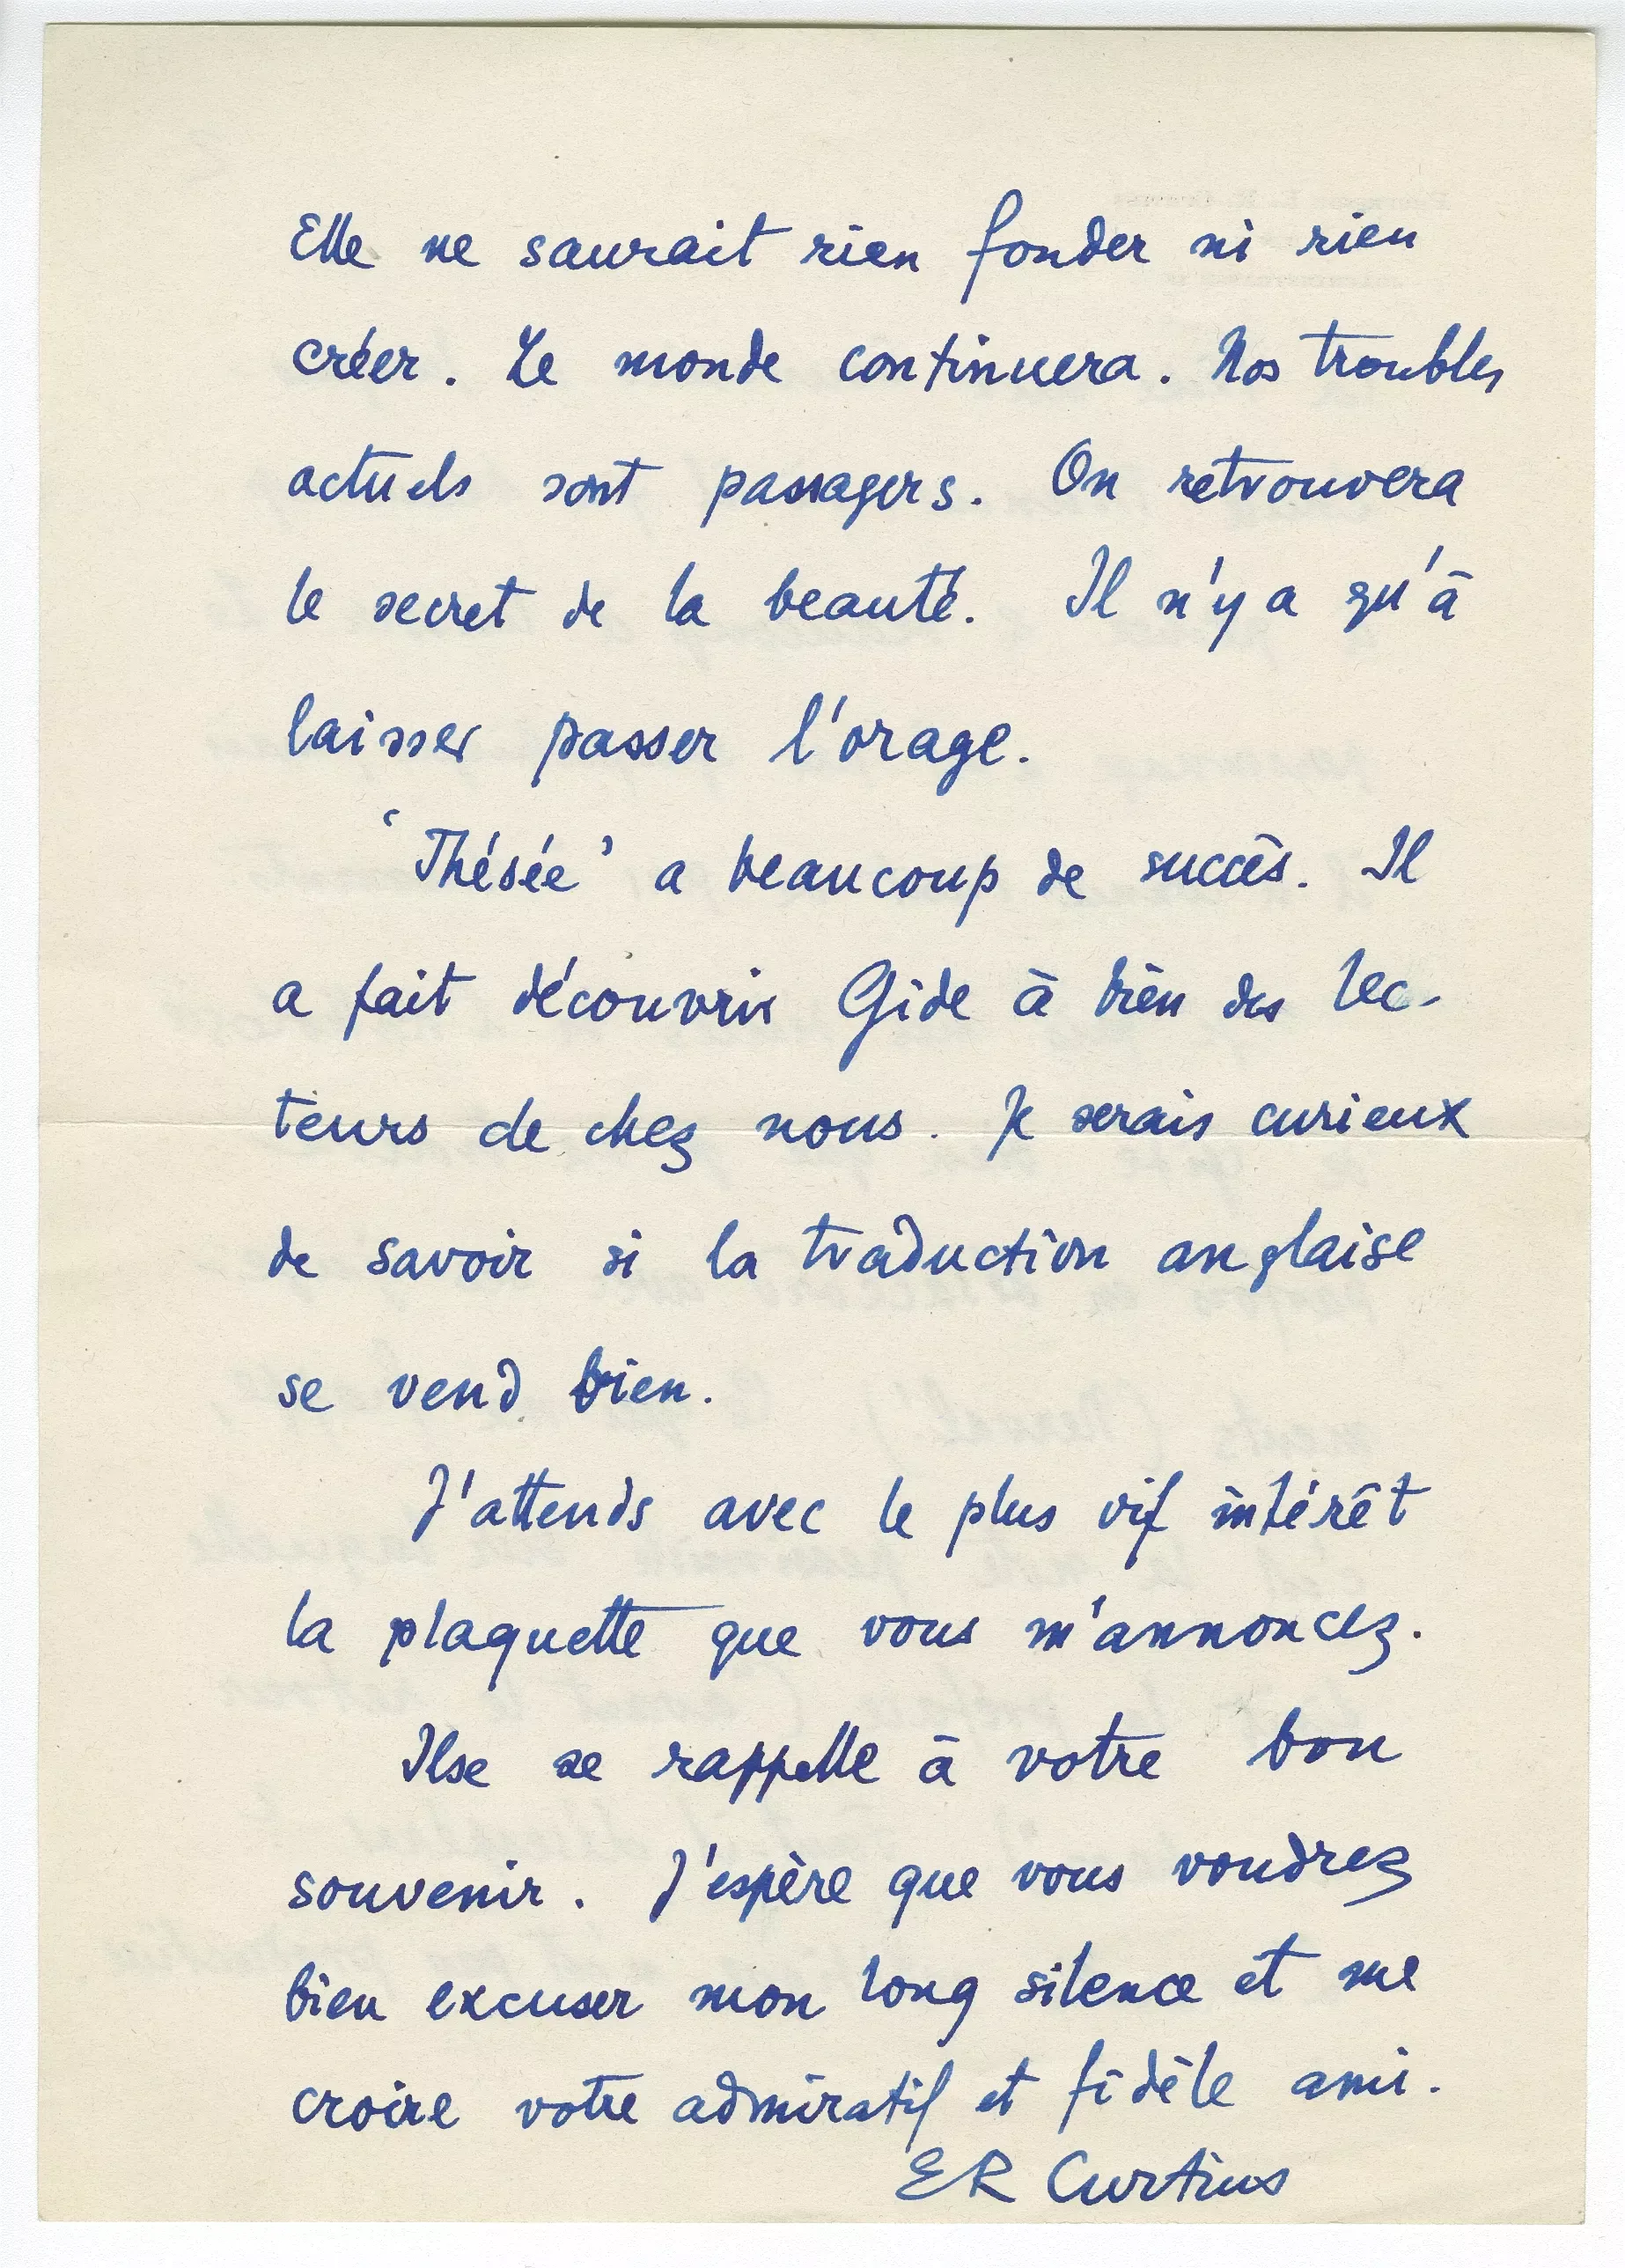 Elle ne saurait rien fonder ni rien
créer. Le monde continuera. Nos troubles
actuels sont passagers. On retrouvera
le secret de la beauté. Il n'y a qu'à
laisser passer l'orage.
‘Thésée’ a beaucoup de succès. Il
a fait découvrir Gide à bien des lec-
teurs de chez nous. Je serais curieux
de savoir si la traduction anglaise
se vend bien.
J'attends avec le plus vif intérêt
la plaquette que vous m'annoncez.
Ilse se rappelle à votre bon
souvenir. J'espère que vous voudrez
bien excuser mon long silence et me
croire votre admiratif et fidèle ami.
ER Curtius